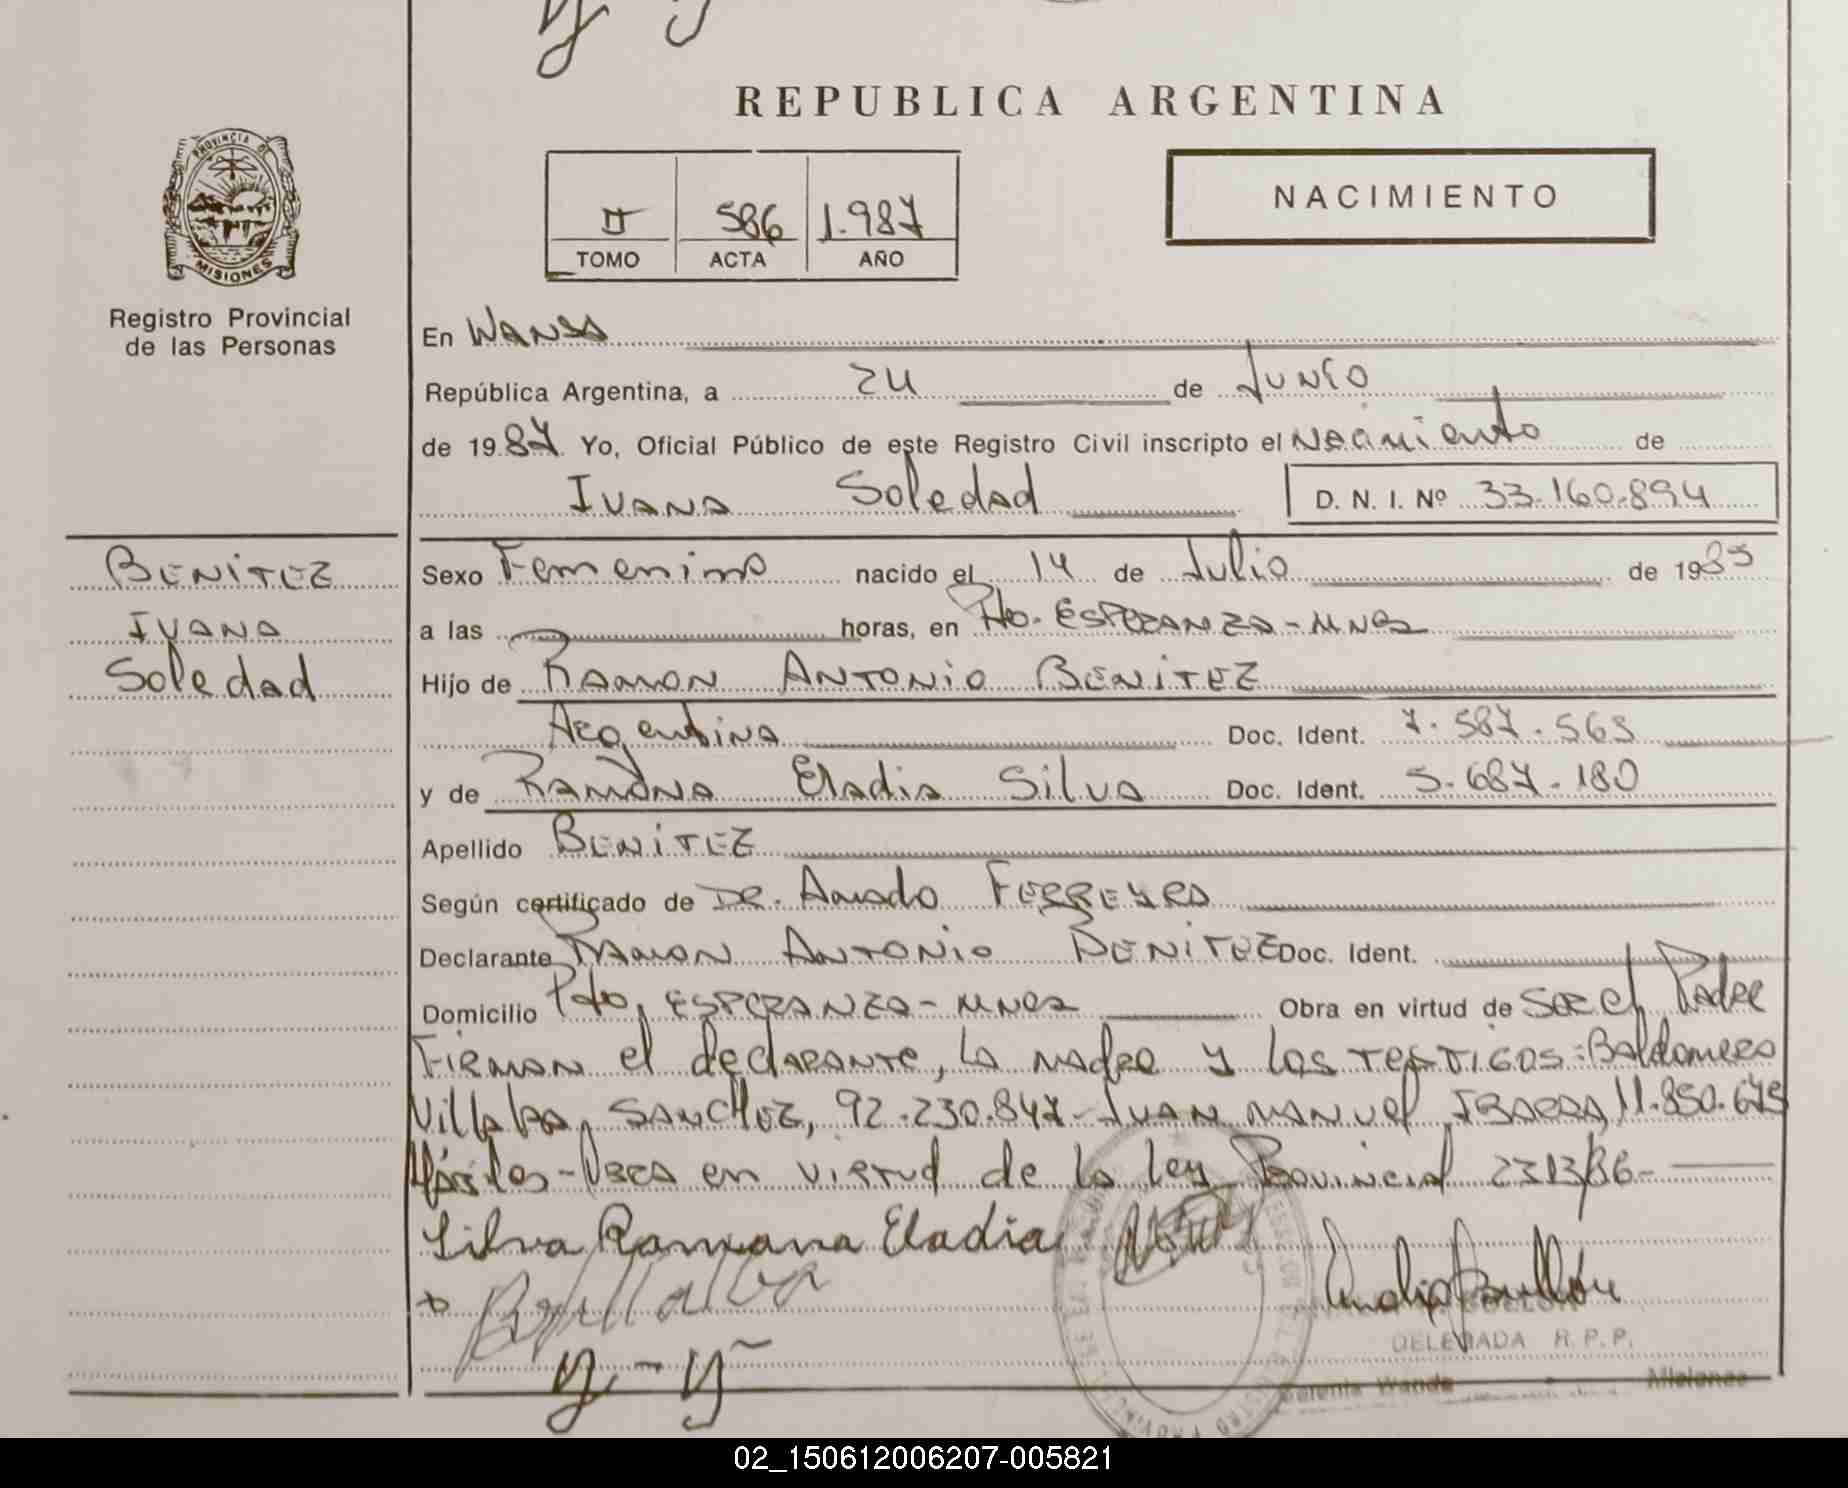 REPUBLICA ARGENTINA
PROVINCIA DE
MISIONES
Registro Provincial
de las Personas
II 586 1.987
TOMO ACTA AÑO
NACIMIENTO
En WANDA
República Argentina, a 24 de Junio
de 1987 Yo, Oficial Público de este Registro Civil inscripto el Nacimiento de
IVANA Soledad D. N. I. Nº 33.160.894
BENITEZ
IVANA
Soledad
Sexo Femenino nacido el 14 de Julio de 1985
a las horas, en Pto. ESPERANZA-MNES
Hijo de RAMON ANTONIO BENITEZ
Argentina Doc. Ident. 7.587.563
y de RAMONA Eladia Silva Doc. Ident. 5.687.180
Apellido BENITEZ
Según certificado de DR. Amado FERREYRA
Declarante RAMON ANTONIO BENITEZ Doc. Ident.
Domicilio Pto. ESPERANZA-MNES Obra en virtud de SER el Padre
FIRMAN el declarante, la madre y los TESTIGOS: Baldomero
Villalba SANCHEZ, 92.230.847-JUAN MANUEL IBARRA, 11.850.675
Hábiles- en virtud de la ley Provincial 2313/86-
Silva Ramona Eladia
DELEGADA R.P.P.
Wanda Misiones
02_150612006207-005821